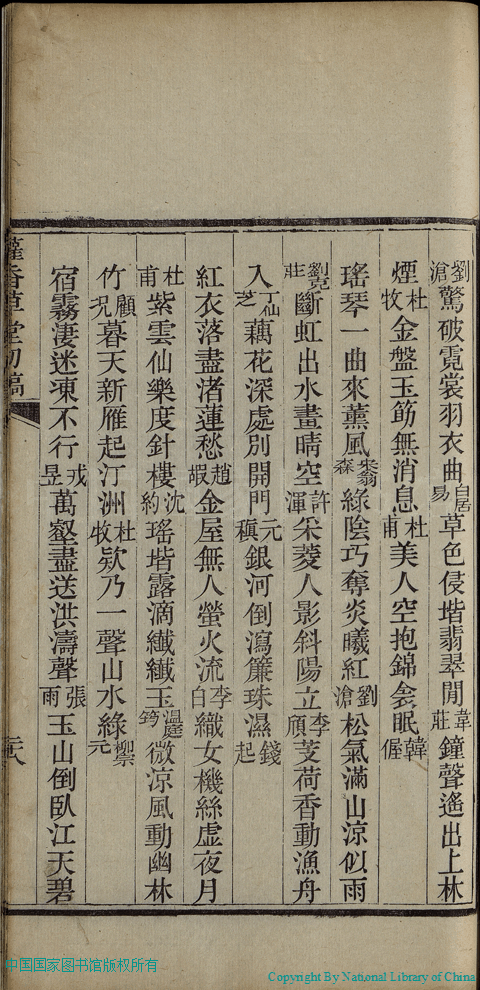 劉滄驚破霓裳羽衣曲白居易草色侵堦翡翠閒韋莊鐘聲遙出上林
煙杜牧金盤玉筯無消息杜甫美人空抱錦衾眠韓偓
瑤琴一曲來薰風宋翁森綠陰巧奪炎曦紅劉滄松氣滿山涼似雨
劉克莊斷虹出水畫晴空許渾采菱人影斜陽立李頎芰荷香動漁舟
入丁仙芝藕花深處別開門元稹銀河倒瀉簾珠濕錢起
紅衣落盡渚蓮愁趙嘏金屋無人螢火流李白織女機絲虛夜月
杜甫紫雲仙樂度針樓沈約瑤堦露滴纖纖玉溫庭筠微涼風動幽林
竹顧况暮天新雁起汀洲杜牧欵乃一聲山水綠柳宗元
宿霧淒迷凍不行戎昱萬壑盡送洪濤聲張雨玉山倒臥江天碧
香草堂初稿
中国国家图书馆版权所有
Copyright By National Library of China